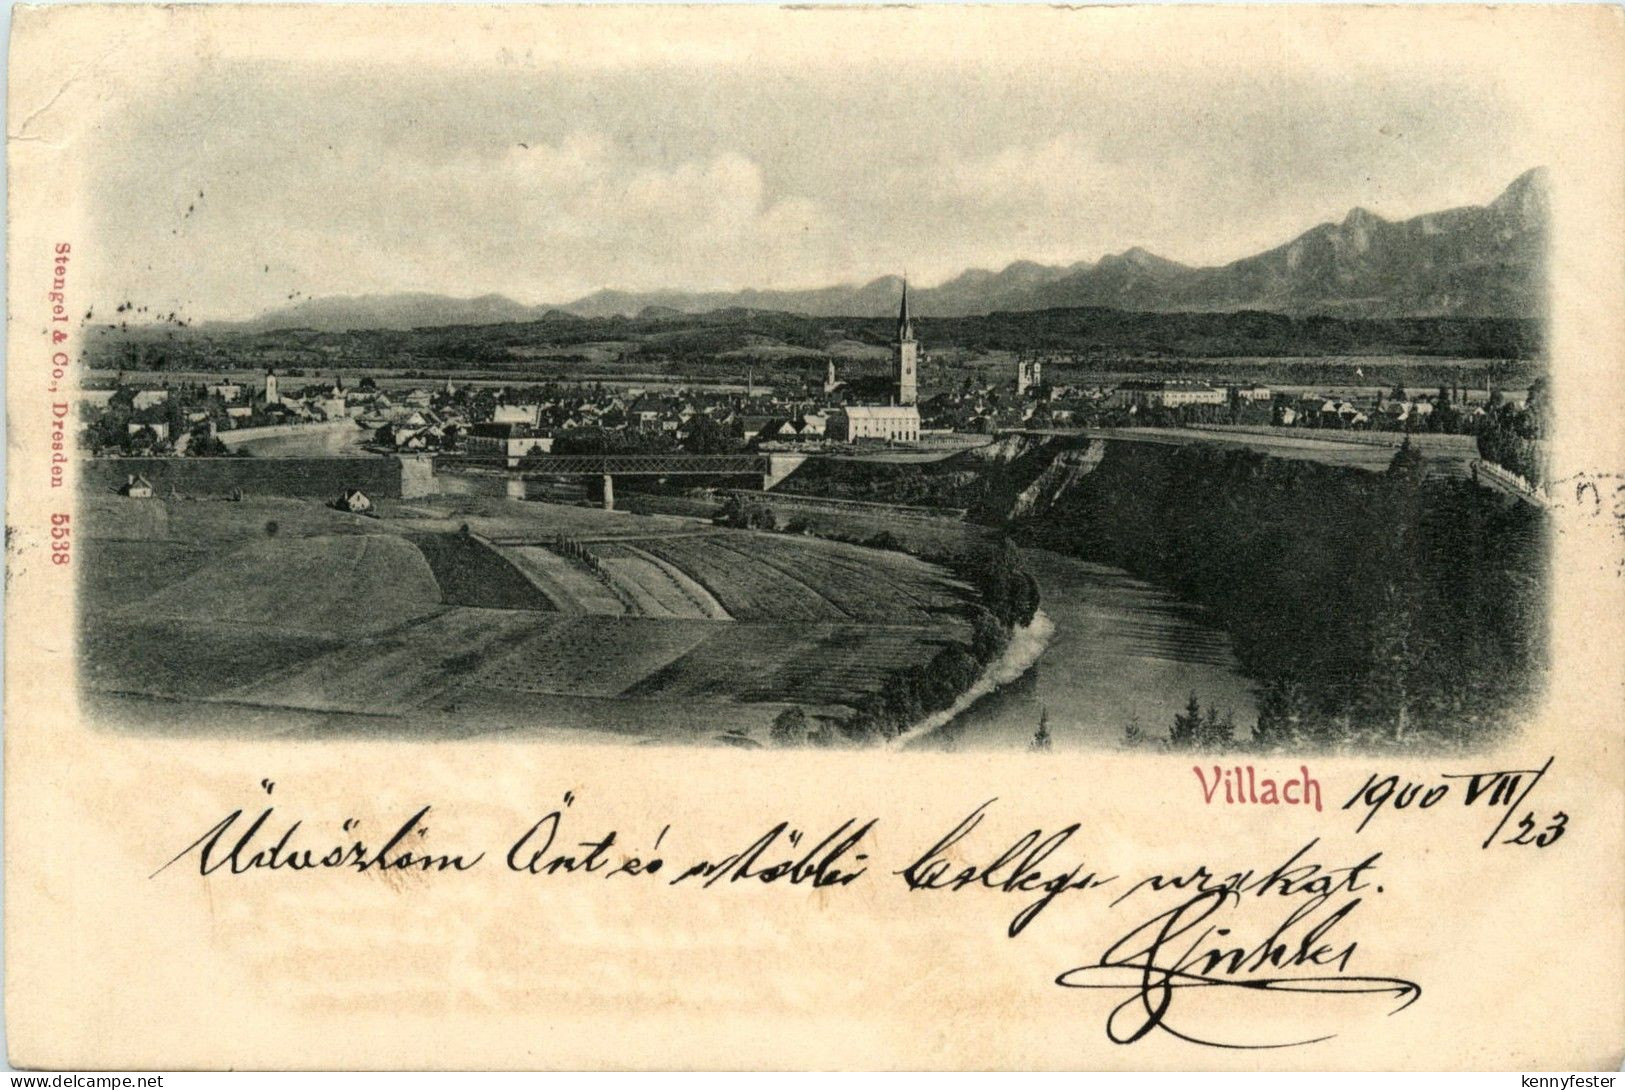 Stengel & Co., Dresden 5538
Villach 1900 VII/23
Üdvözlöm Önt és a többi Collega urakat.
delcampe.net
kennyfester